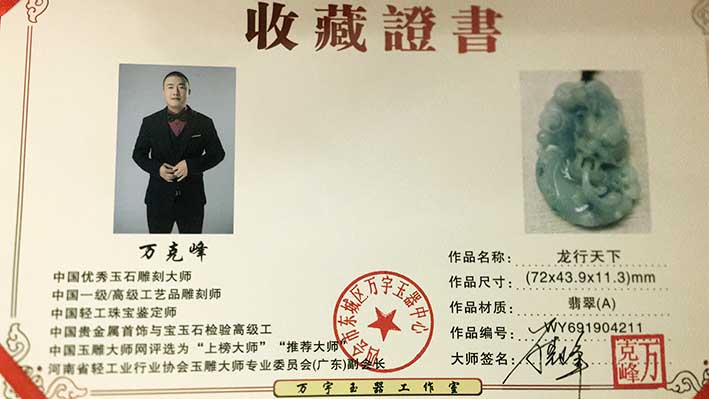 收藏證書
万克峰
中国优秀玉石雕刻大师
中国一级/高级工艺品雕刻师
中国轻工珠宝鉴定师
中国贵金属首饰与宝玉石检验高级工
中国玉雕大师网评选为“上榜大师”“推荐大师”
河南省轻工业行业协会玉雕大师专业委员会(广东)副会长
作品名称: 龙行天下
作品尺寸: (72x43.9x11.3)mm
作品材质: 翡翠(A)
作品编号: WY691904211
大师签名:
万克峰
会市东城区万宇玉器中心
万宇玉器工作室